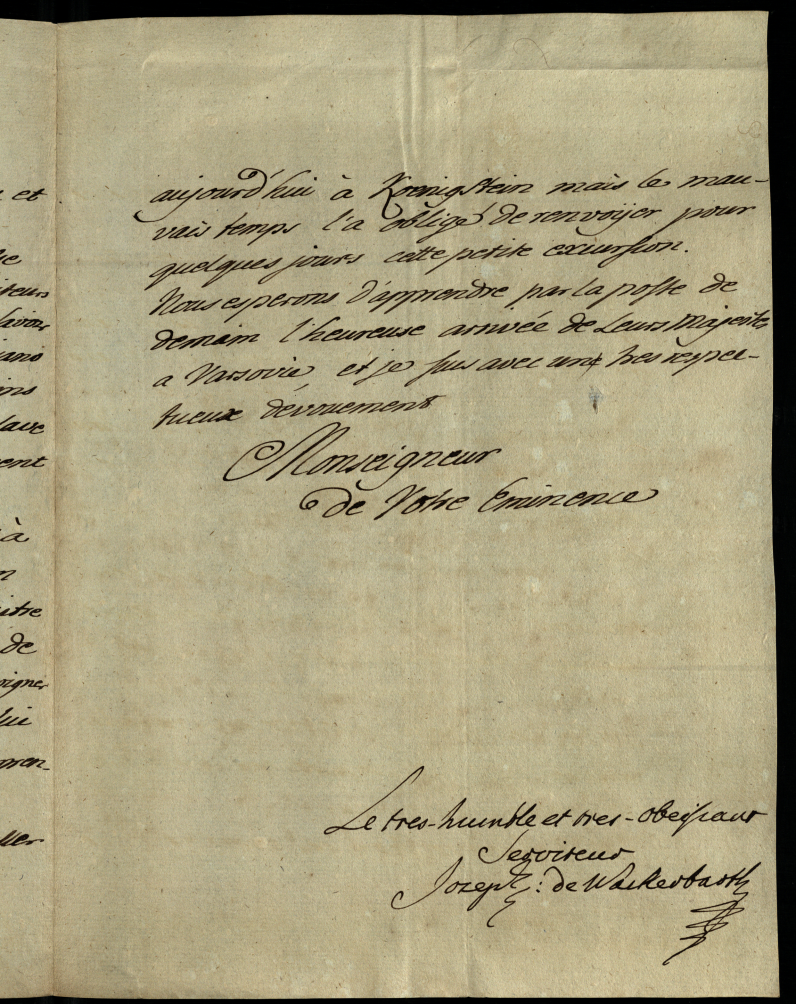 aujourd'hui à Kœnigstein mais le mau-
vais temps l'a obligé de renvoÿer pour
quelques jours cette petite excursion.
Nous esperons d'apprendre par la poste de
demain l'heureuse arrivée de Leurs Majestes
a Varsovie et je suis avec un tres respec-
tueux dévouement
Monseigneur
de Votre Eminence
Le tres-humble et tres-obeissant
Serviteur
Joseph: de Wackerbarth
et
à
de